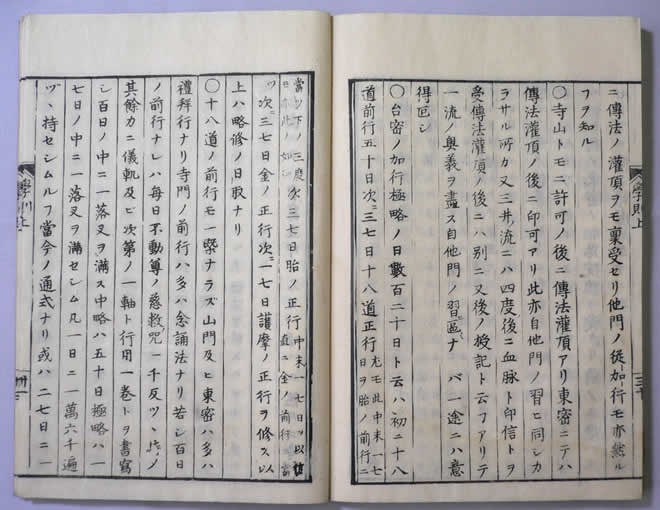 ニ傳法ノ灌頂ヲモ稟受セリ他門ノ從加行モ亦然ル
フヲ知ル
○寺山トモニ許可ノ後ニ傳法灌頂アリ東密ニテハ
傳法灌頂ノ後ニ印可アリ此亦自他門ノ習ヒ同シカ
ラサル所カ又三井流ニハ四度後ニ血脉ト印信トヲ
受傳法灌頂ノ後ニハ別ニ又後ノ授記ト云フアリテ
一流ノ奥義ヲ盡ス自他門ノ習區ナ バ一途ニハ意
得叵シ
○台密ノ加行極略ノ日數百二十日ト云ハ初ニ十八
道前行五十日次ニ三七日十八道正行
尤モ此中末一七
日ヲ胎ノ前行ニ
當
次ニ三七日胎ノ正行
中末一七日ヲ以
直ニ金ノ前行
次ニ三七日金ノ正行次ニ一七日護摩ノ正行ヲ修ス以
上ハ略修ノ日取ナリ
○十八道ノ前行モ一槩ナラズ山門及ヒ東密ハ多ハ
禮拜行ナリ寺門ノ前行ハ多ハ念誦法ナリ若シ百日
ノ前行ナレハ毎日不動尊ノ慈救咒一千反ツヽ
其餘カニ儀軌及ヒ次第ノ一軸ト行用一巻トヲ書寫
シ百日ノ中ニ一落叉ヲ滿ス中略ハ五十日極略ハ一
七日ノ中ニ一落叉ヲ滿セシム凡一日ニ一萬六千遍
ヅヽ持セシムルフ當今ノ通式ナリ或ハ二七日ニ一
學則上